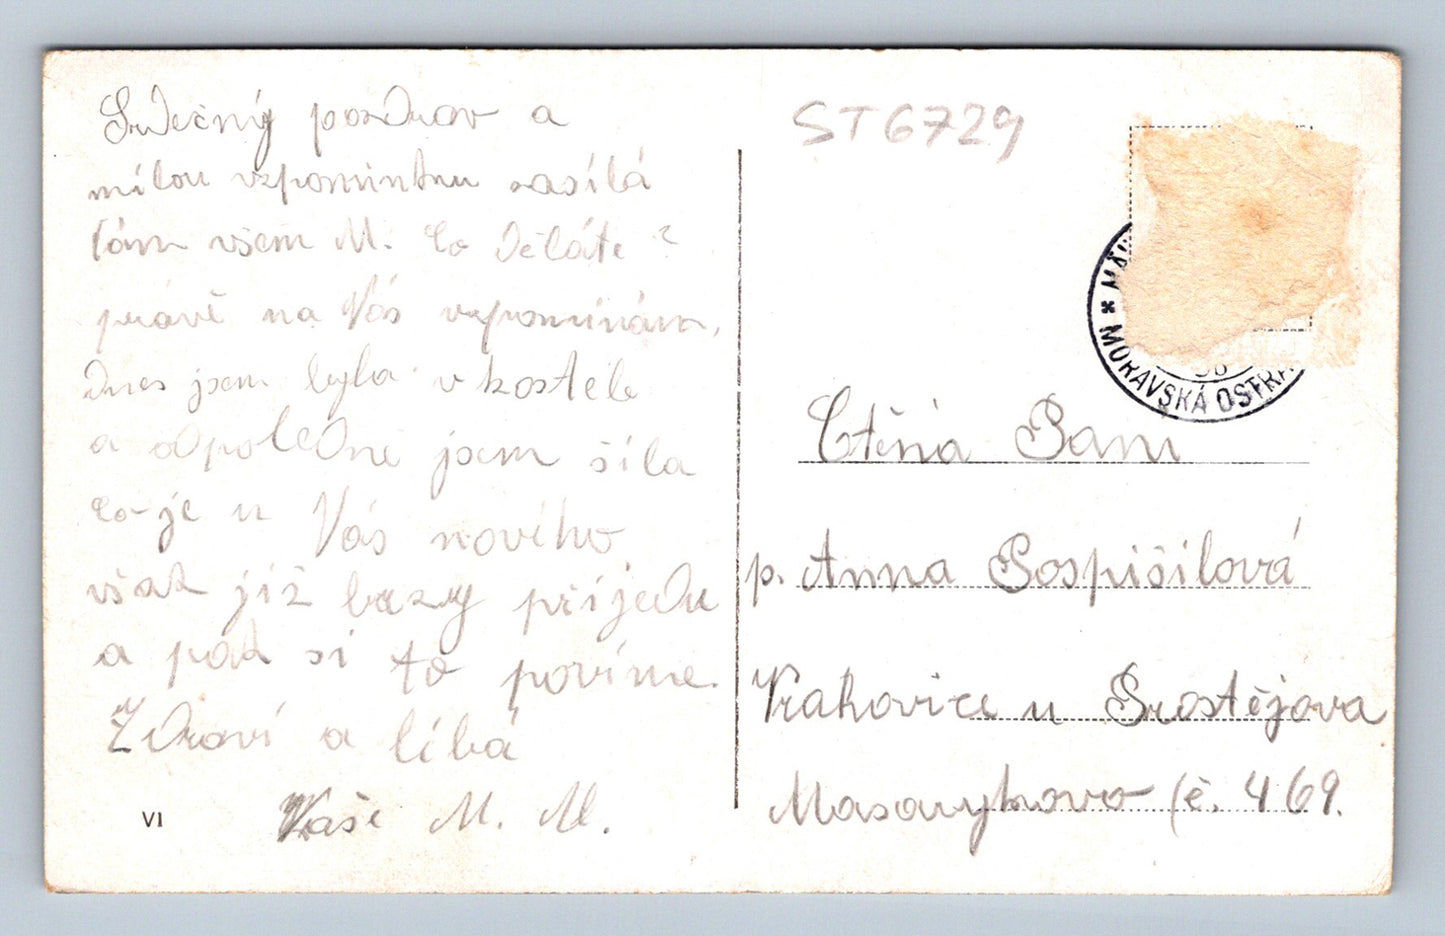 Srdečný pozdrav a
milou vzpomínku zasílá
Vám všem M. Co děláte?
právě na Vás vzpomínám,
dnes jsem byla v kostele
a odpoledne jsem šila
co je u Vás nového
však již brzy příjedu
a pak si to povíme.
Zdraví a líbá
Vaše M. M.
VI
ST6729
MORAVSKÁ OSTRA
Ctěná Paní
p. Anna Pospíšilová
Vrahovice u Prostějova
Masarykova č. 469.